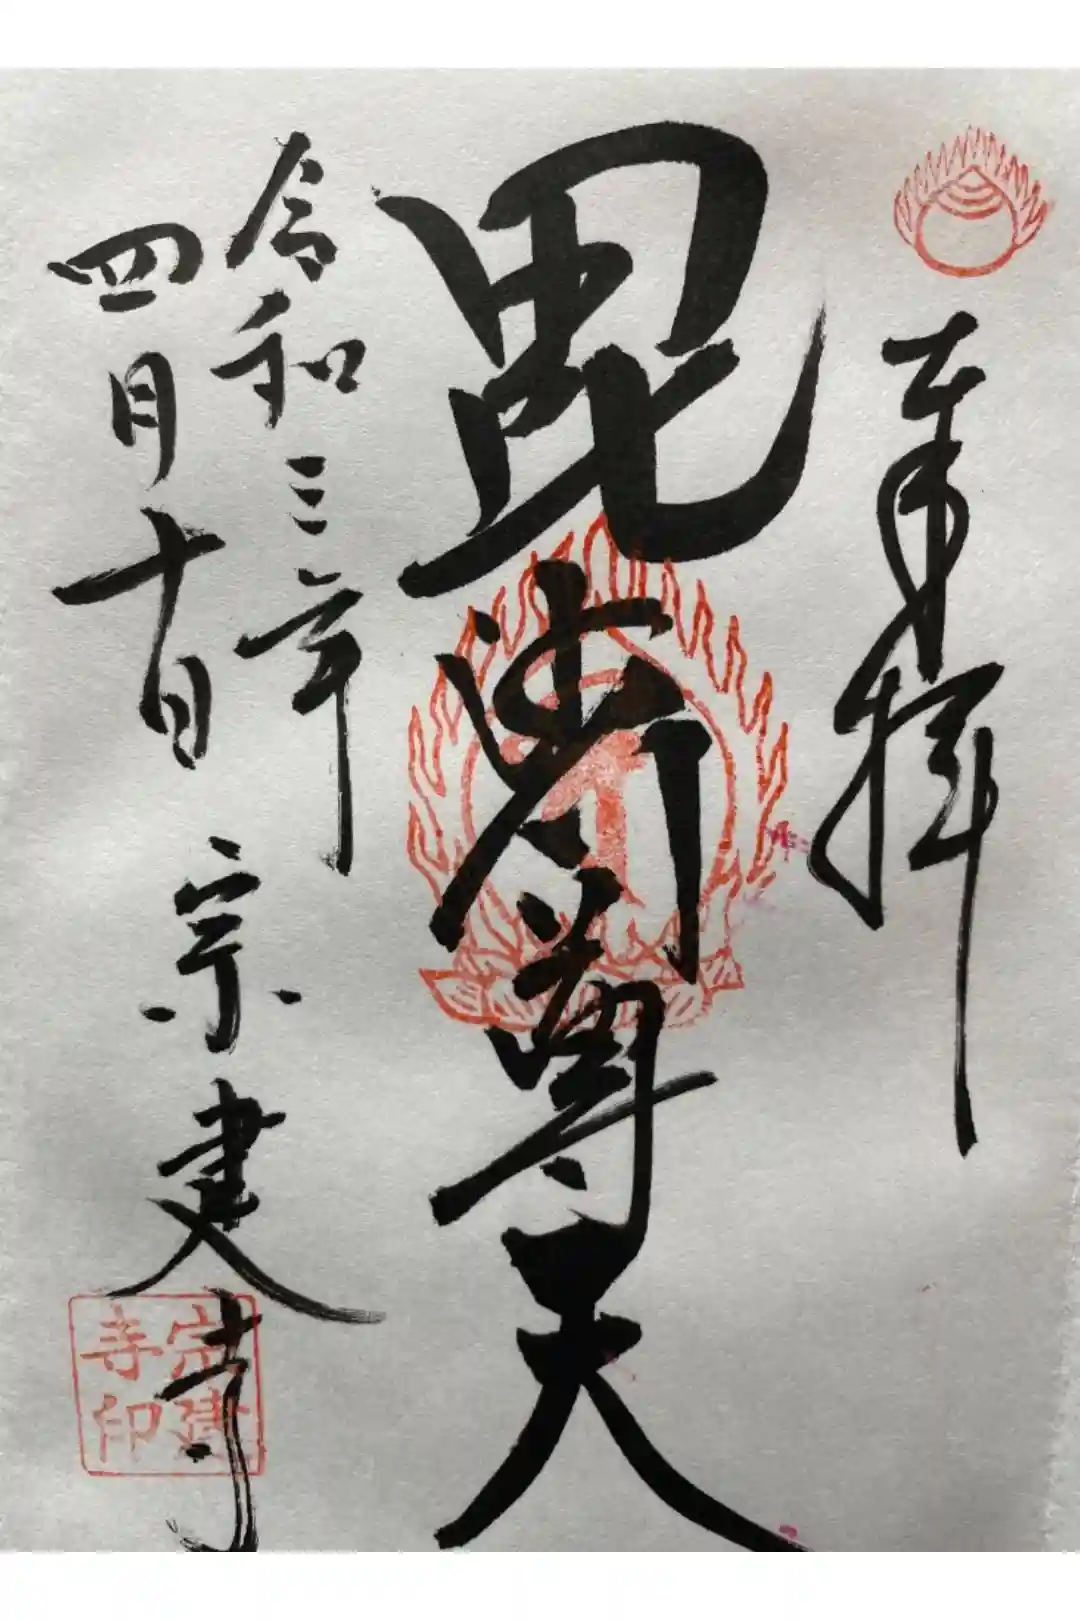 奉拝
毘沙門尊天
令和三年
四月十日
宗建寺
宗建
寺印